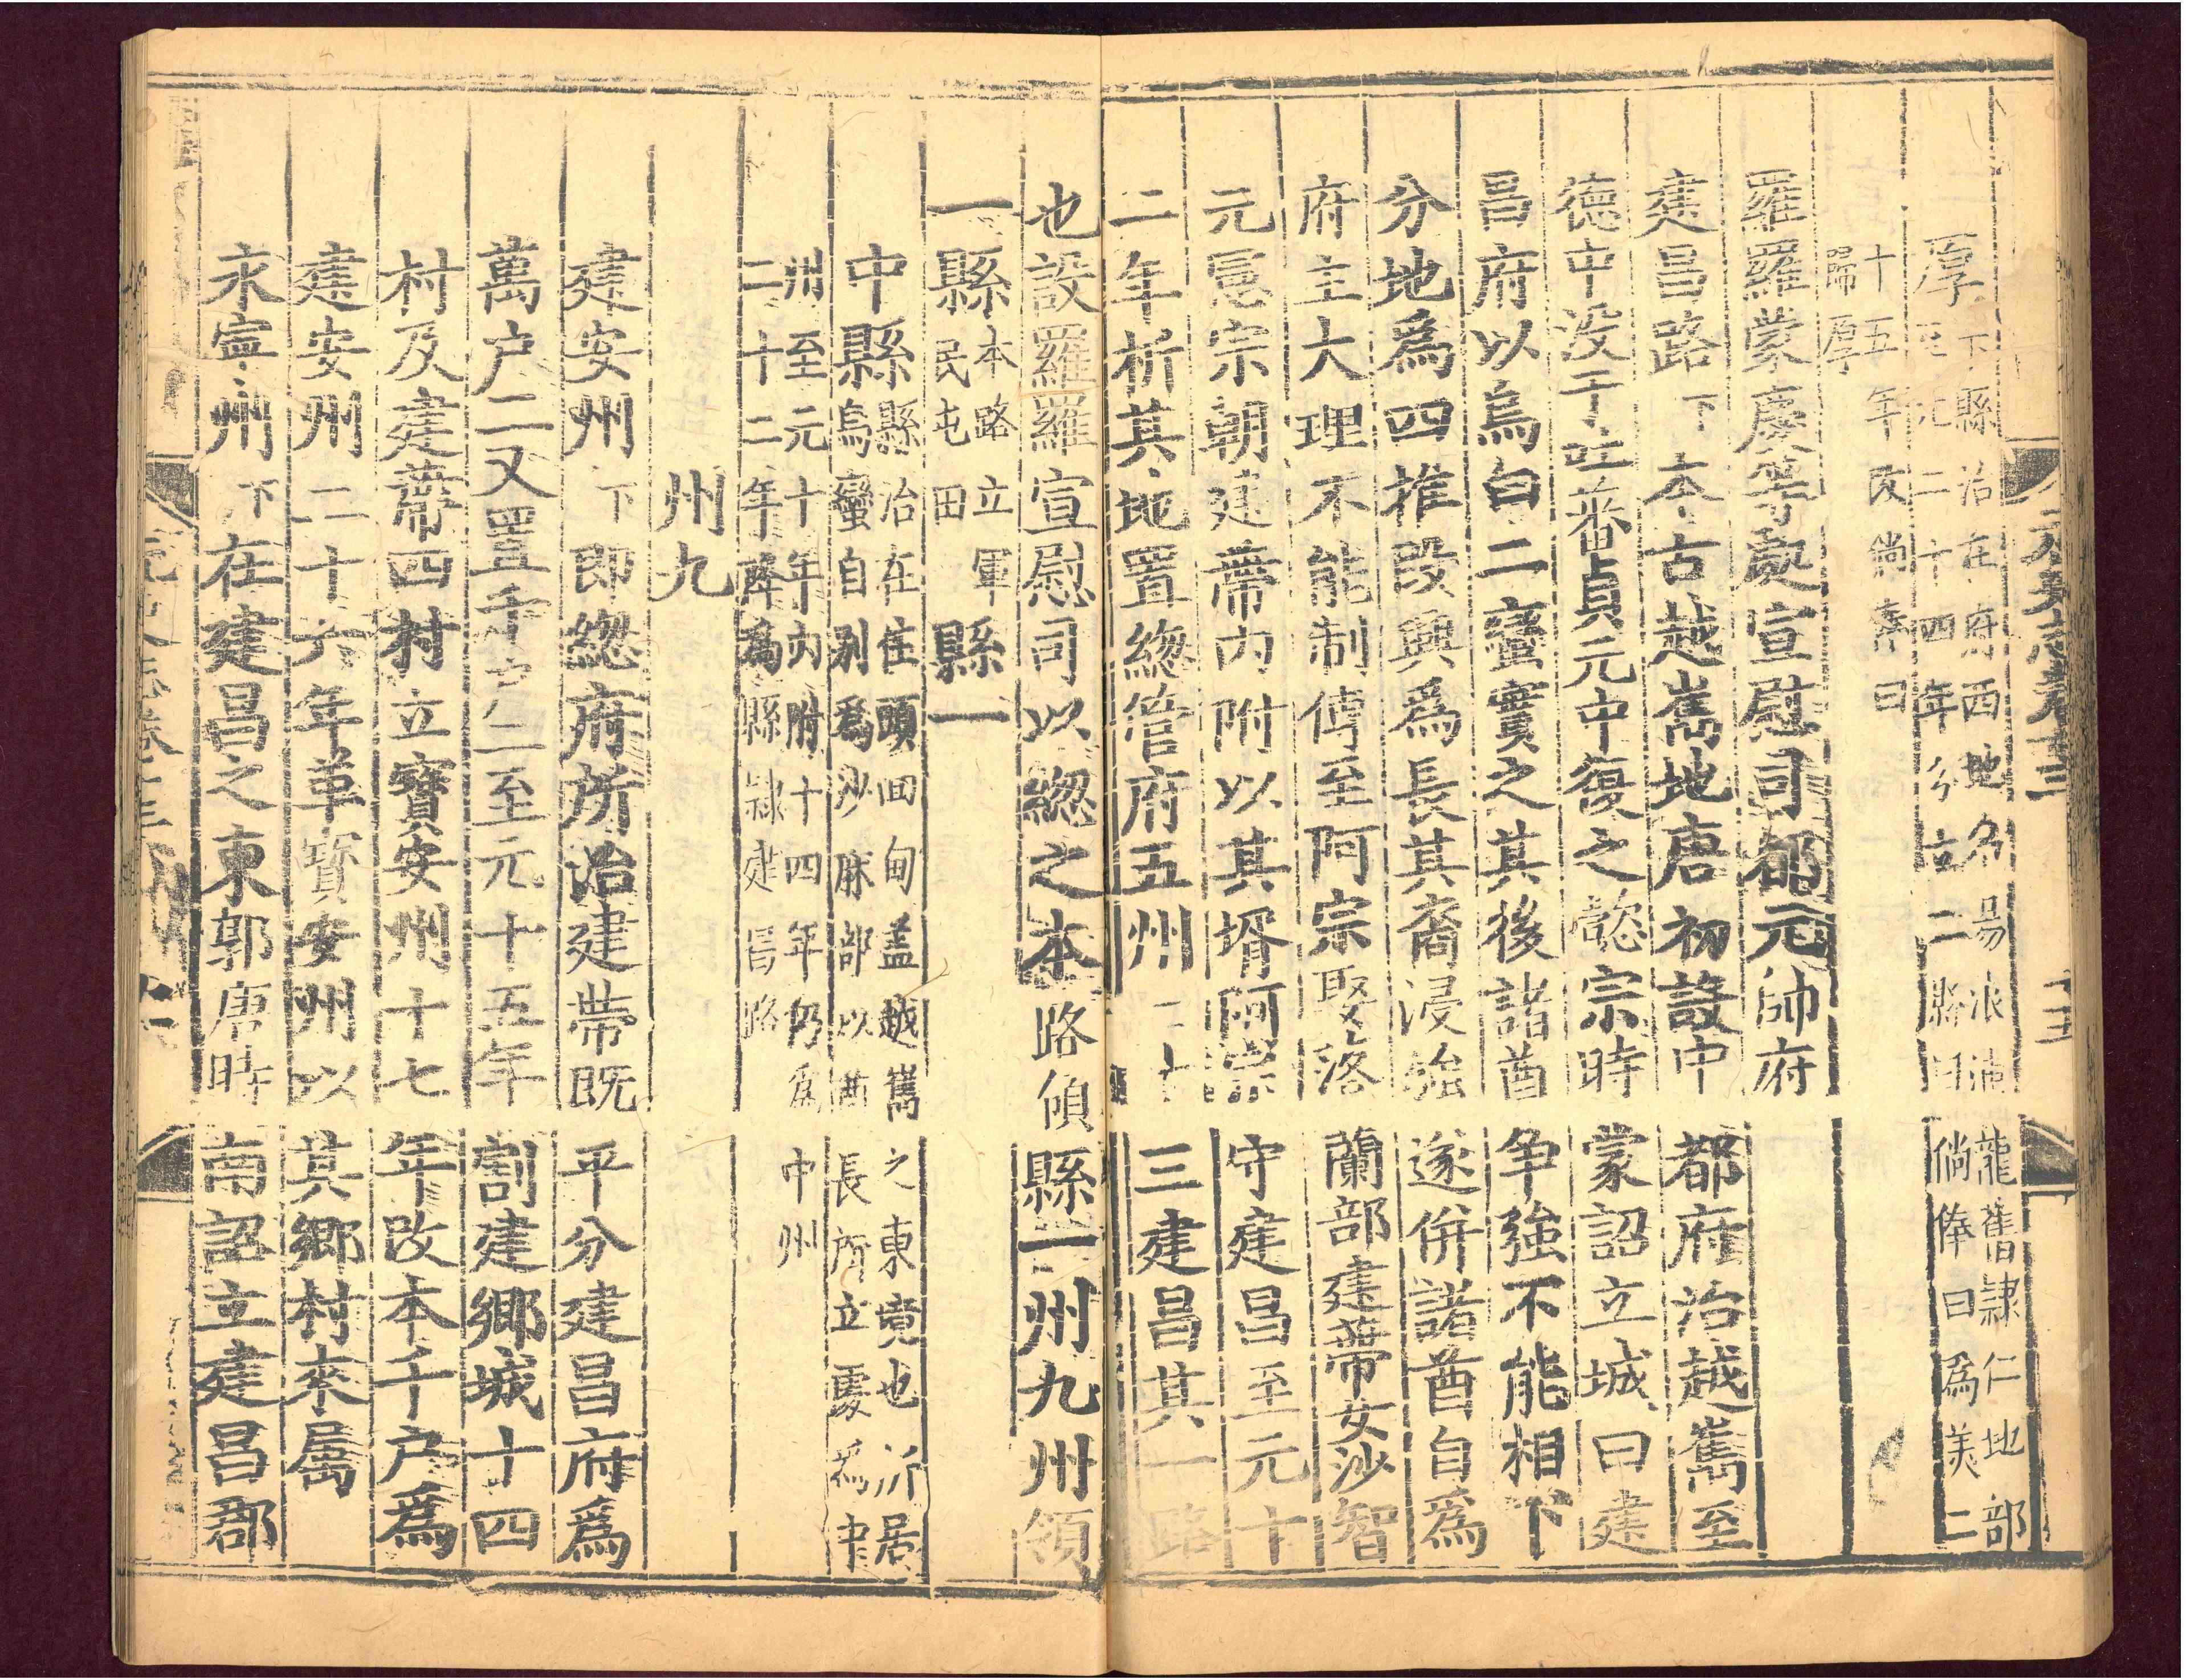 元史志卷十三 十五
厚下縣治在府西地名湯浪浦龍舊隸仁地部
至元二十四年分立二縣曰倘俸曰爲美二
十五年改倘俸曰
歸厚
羅羅蒙慶等處宣慰司都元帥府
建昌路下本古越嶲地唐初設中都府治越嶲至
德中没于吐蕃貞元中復之懿宗時蒙詔立城曰建
昌府以烏白二蠻實之其後諸酋争強不能相下
分地爲四推段興爲長其裔浸強遂併諸酋自爲
府主大理不能制傳至阿宗娶落蘭部建蔕女沙智
元憲宗朝建蔕内附以其壻阿宗守建昌至元十
二年析其地置總管府五州二十三建昌其一路
也設羅羅宣慰司以總之本路傾縣一州九州領
一縣本路立軍
民屯田縣一
中縣縣治在住頭回甸盖越嶲之東境也所居
烏蠻自别爲沙麻部以酋長所立處爲中
州至元十年内附十四年仍爲中州
二十二年降爲縣隷建昌路
州九
建安州下即總府所治建蔕既平分建昌府爲
萬户二又置千户二至元十五年割建鄉城十四
村及建蔕四村立寶安州十七年改本千户爲
建安州二十六年革寶安州以其鄉村來屬
永寧州下在建昌之東郭唐時南詔立建昌郡